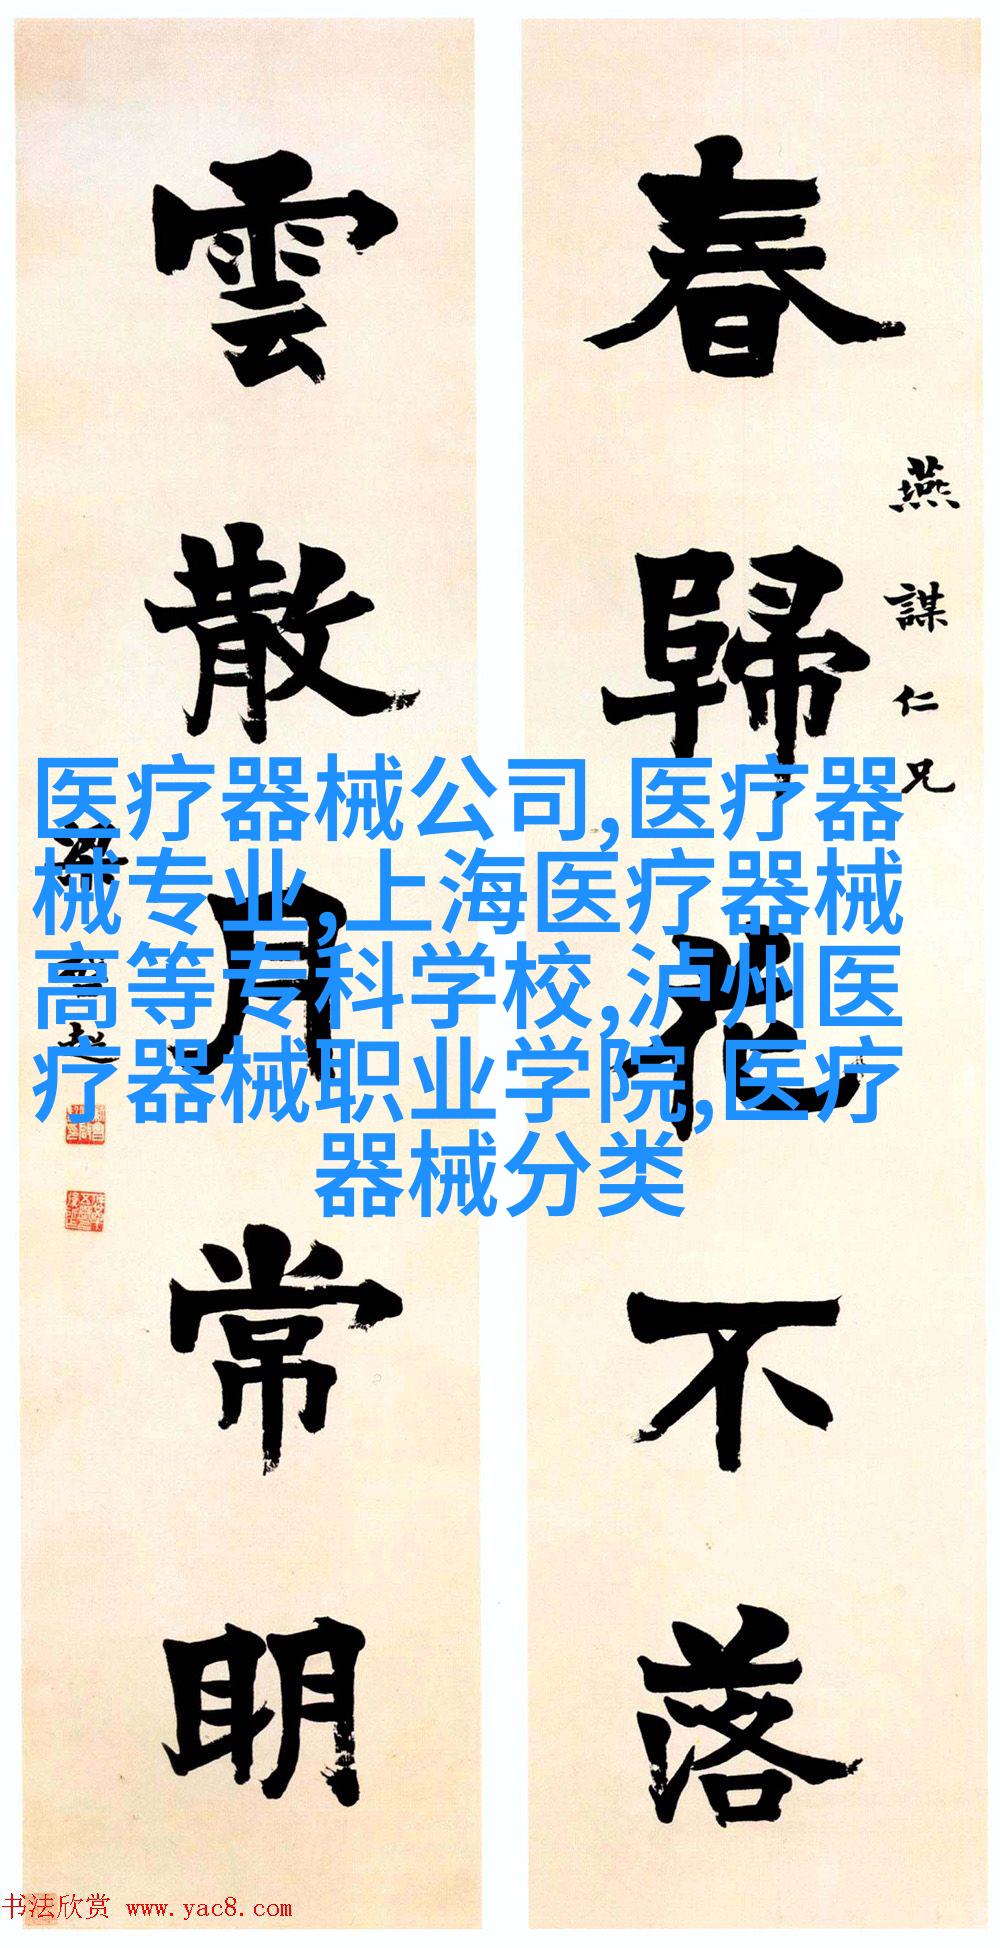 春歸花不落
燕謀仁兄
雲散月常明
梁啓超
医疗器械公司,医疗器
械专业,上海医疗器械
高等专科学校,泸州医
疗器械职业学院,医疗
器械分类
书法欣赏 www.yac8.com